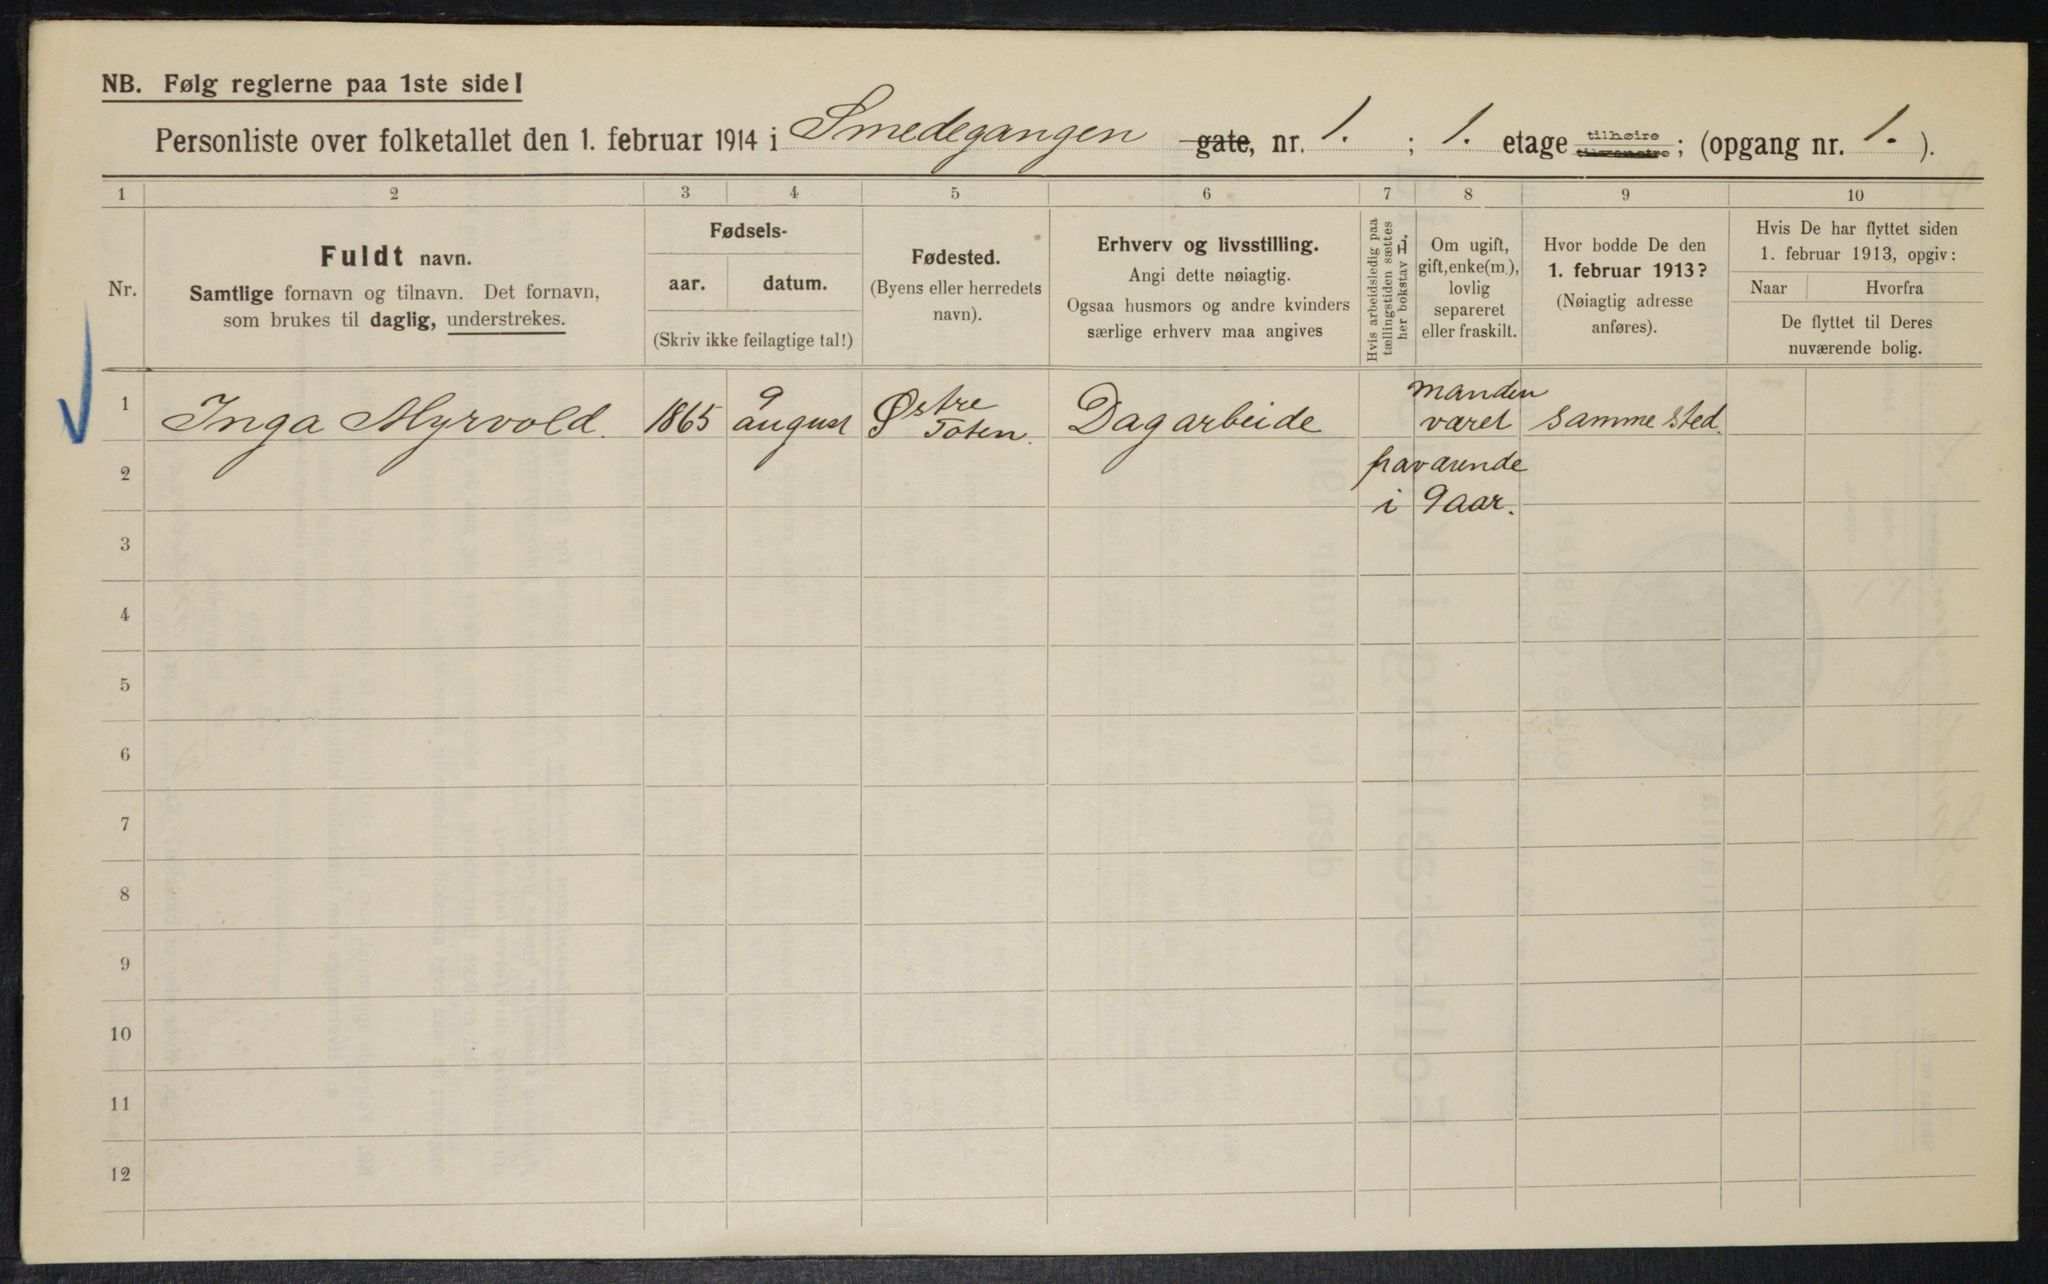 NB. Følg reglerne paa 1ste side!
Personliste over folketallet den 1. februar 1914 i Smedegangen gate, nr. 1. ; 1. etage tilhøire tilvenstre; (opgang nr. 1. ).
1 2 3 4 5 6 7 8 9 10
Nr.
Fuldt navn.
Samtlige fornavn og tilnavn. Det fornavn,
som brukes til daglig, understrekes.
Fødsels-
aar. datum.
(Skriv ikke feilagtige tal!)
Fødested.
(Byens eller herredets
navn).
Erhverv og livsstilling.
Angi dette nøiagtig.
Ogsaa husmors og andre kvinders
særlige erhverv maa angives
Hvis arbeidsledig paa
tællingstiden sættes
her bokstav L,
Om ugift,
gift, enke(m.),
lovlig
separeret
eller fraskilt.
Hvor bodde De den
1. februar 1913?
(Nøiagtig adresse
anføres).
Hvis De har flyttet siden
1. februar 1913, opgiv:
Naar Hvorfra
De flyttet til Deres
nuværende bolig.
1 Inga Myrvold. 1865 9 august Østre Toten. Dagarbeide manden været fraværende i 9 aar. samme sted.
2
3
4
5
6
7
8
9
10
11
12